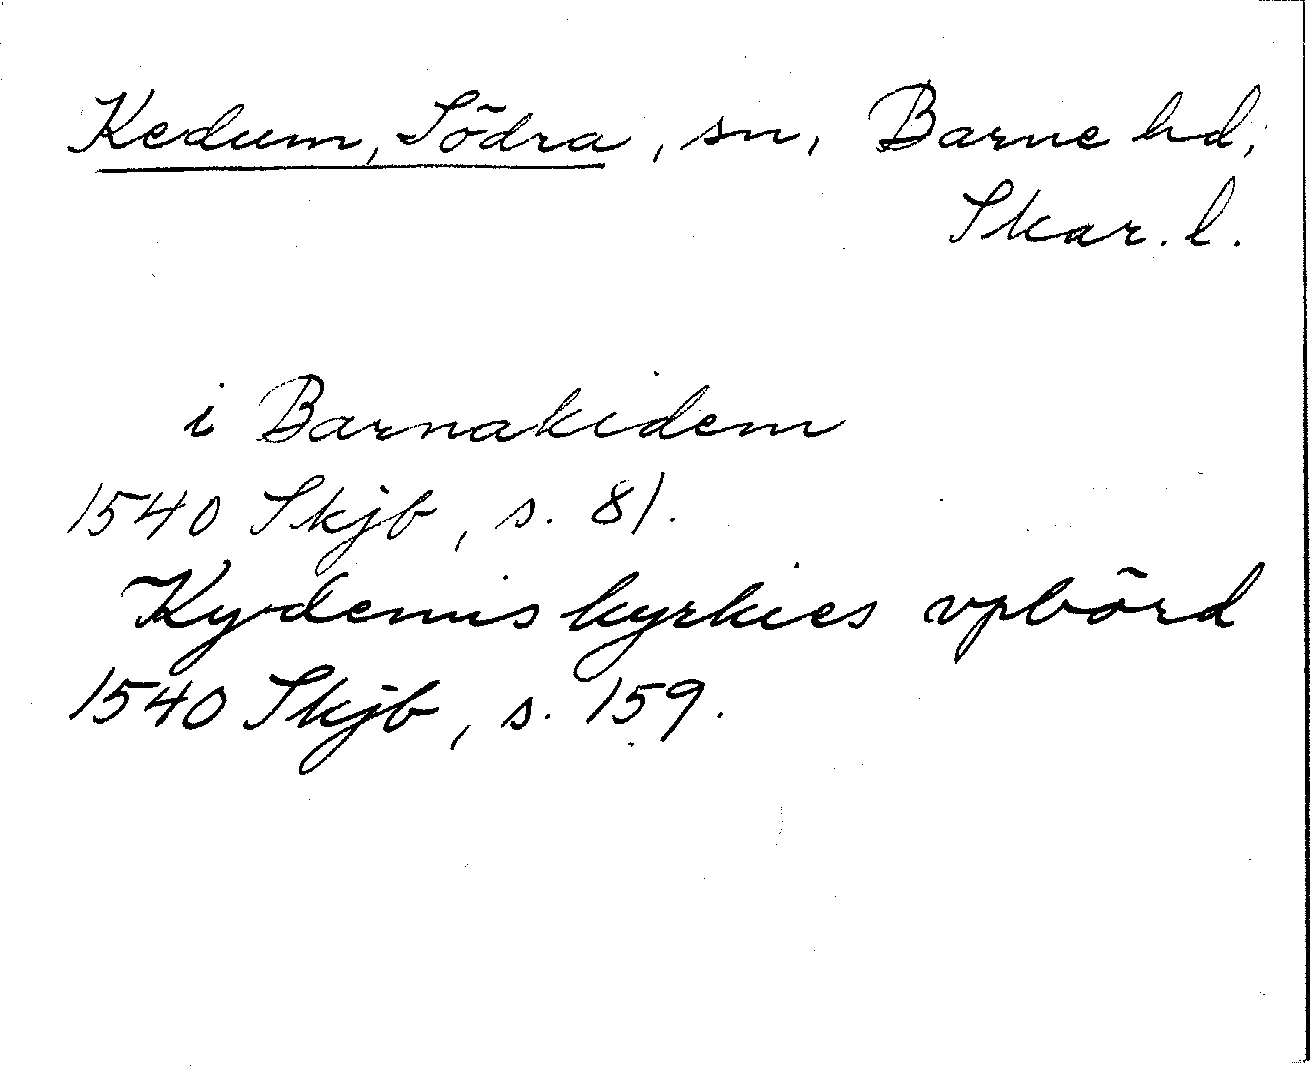 Kedum, Södra, sn, Barne hd,
Skar. l.
i Barnakidem
1540 Skjb, s. 81.
Kydemis kyrkies vpbörd
1540 Skjb, s. 159.